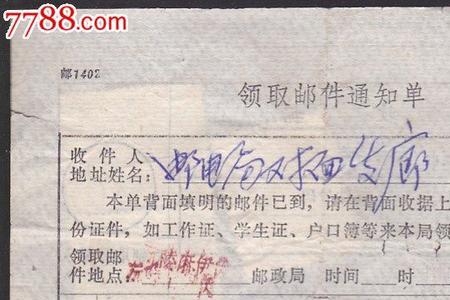 7788.com
邮1402
领取邮件通知单
收件人
地址姓名：邮电局对面
本单背面填明的邮件已到，请在背面收据上
份证件，如工作证、学生证、户口簿等来本局领
领取邮
件地点： 邮政局 时间 时